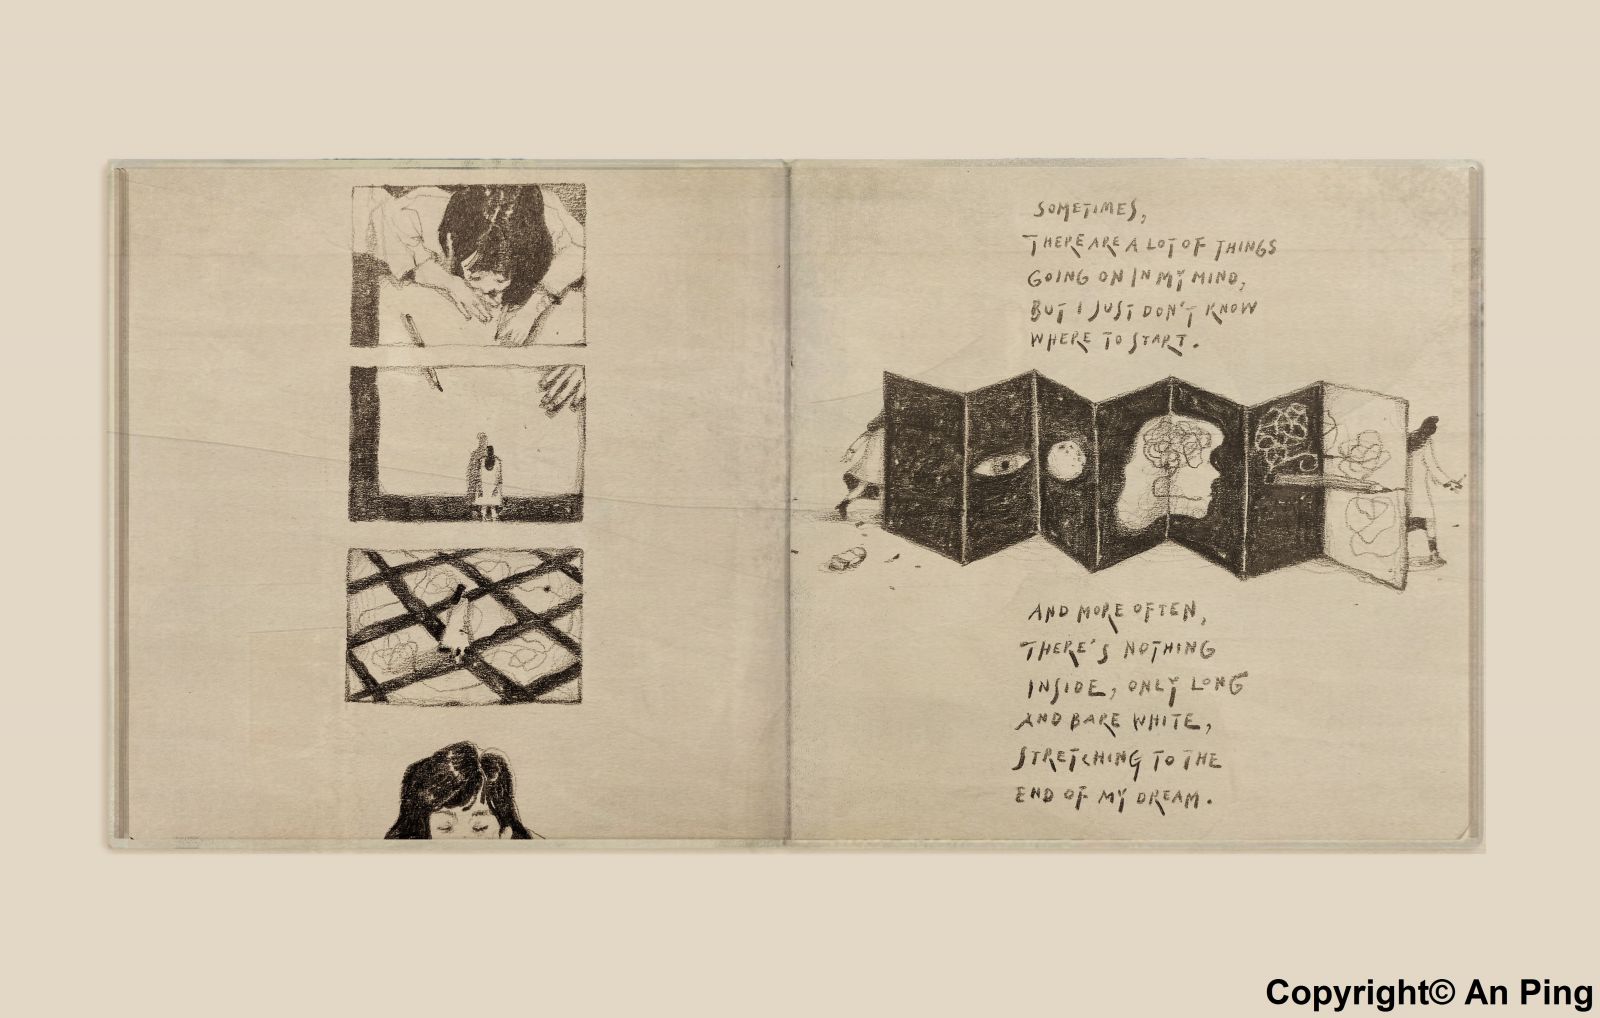 SOMETIMES,
THERE ARE A LOT OF THINGS
GOING ON IN MY MIND,
BUT I JUST DON'T KNOW
WHERE TO START.
AND MORE OFTEN,
THERE'S NOTHING
INSIDE, ONLY LONG
AND BARE WHITE,
STRETCHING TO THE
END OF MY DREAM.
Copyright© An Ping